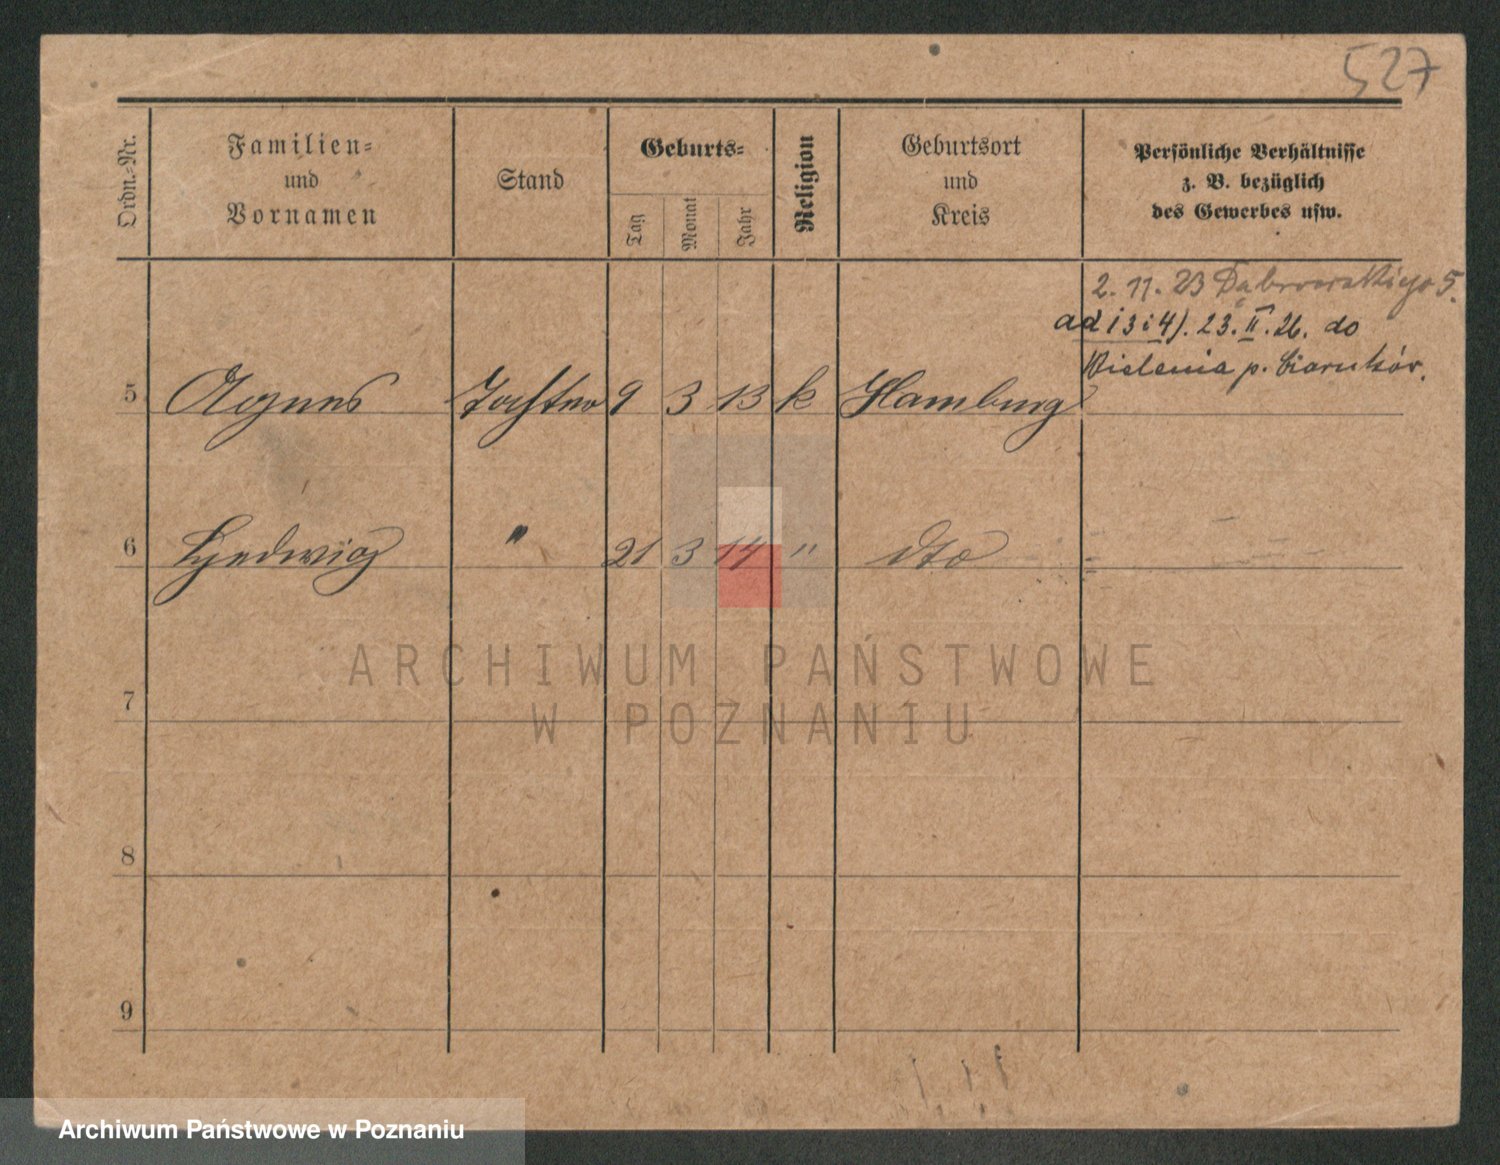 527
Ordn.-Nr.
Familien-
und
Vornamen
Stand
Geburts-
Tag
Monat
Jahr
Religion
Geburtsort
und
Kreis
Persönliche Verhältnisse
z. B. bezüglich
des Gewerbes usw.
2. 11. 23 Dąbrowskiego 5.
ad i 3 i 4). 23. II. 26. do
Wielenia p. Czarnków.
5 Agnes Tochter 9 3 13 k Hamburg
6 Hedwig " 21 3 14 " dto
7
8
9
ARCHIWUM PAŃSTWOWE
W POZNANIU
Archiwum Państwowe w Poznaniu